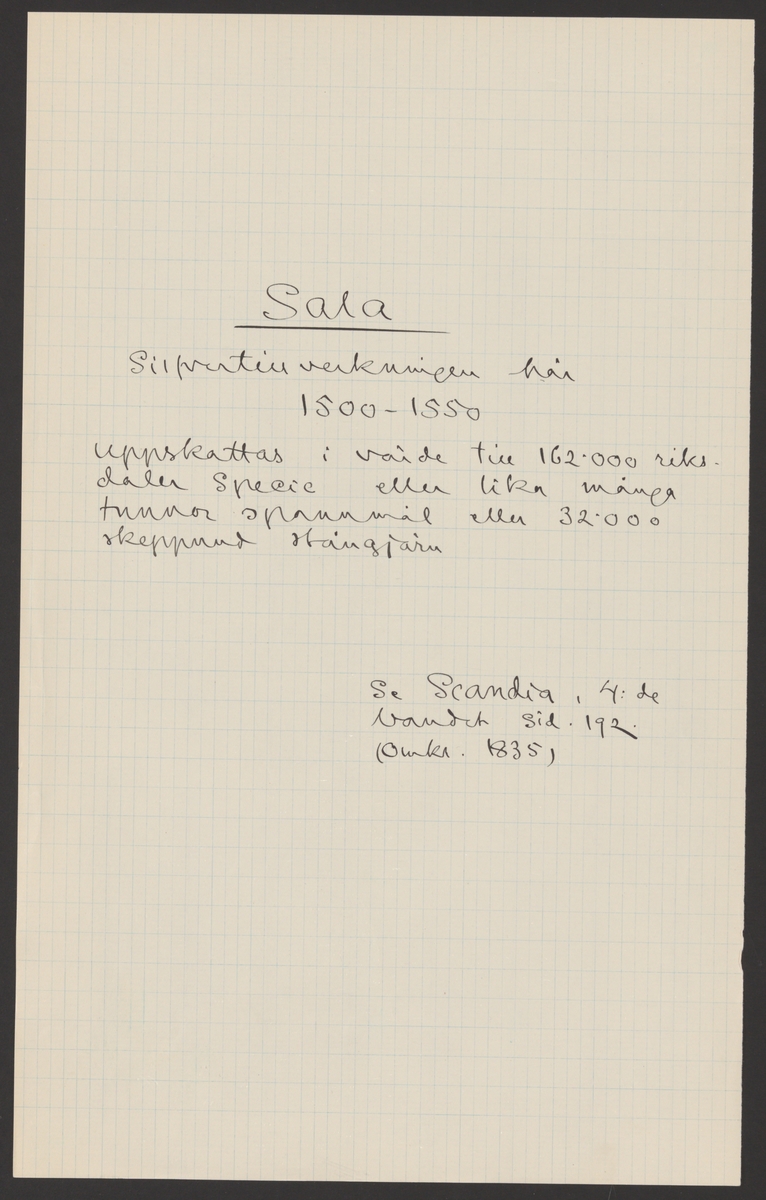 Sala
Silfvertillverkningen här
1500-1550
uppskattas i värde till 162.000 riks-
daler Specie eller lika många
tunnor spannmål eller 32.000
skeppund stångjärn
Se Scandia, 4:de
bandet sid. 192.
(Omkr. 1835)